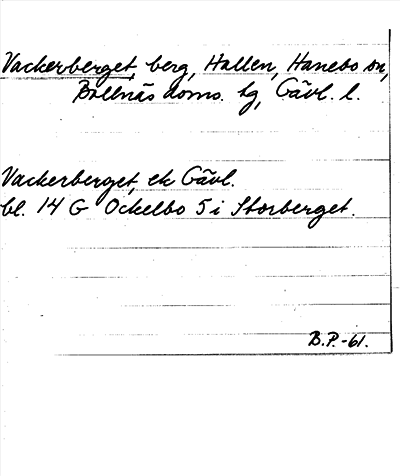 Vackerberget, berg, Hallen, Hanebo sn,
Bollnäs doms. tg, Gävl. l.
Vackerberget, ek Gävl.
bl. 14 G Ockelbo 5 i Storberget.
B.P.-61.